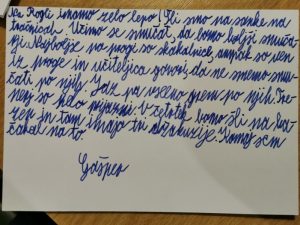 Na Rogli imamo zelo lepo! Šli smo na sanke na
Mašinžago. Učimo se smučat, da bomo boljši smuča-
ji. Najboljše na progi so skakalnice, ampak so ven
iz proge in učiteljica govori, da ne smemo smu-
čati po njih. Jaz pa vseeno grem po njih. Tre-
nerji so zelo prijazni. V četrtek bomo šli na ba-
zen in tam imajo tri džakuzije. Komaj sem
čakal na to.
Gašper